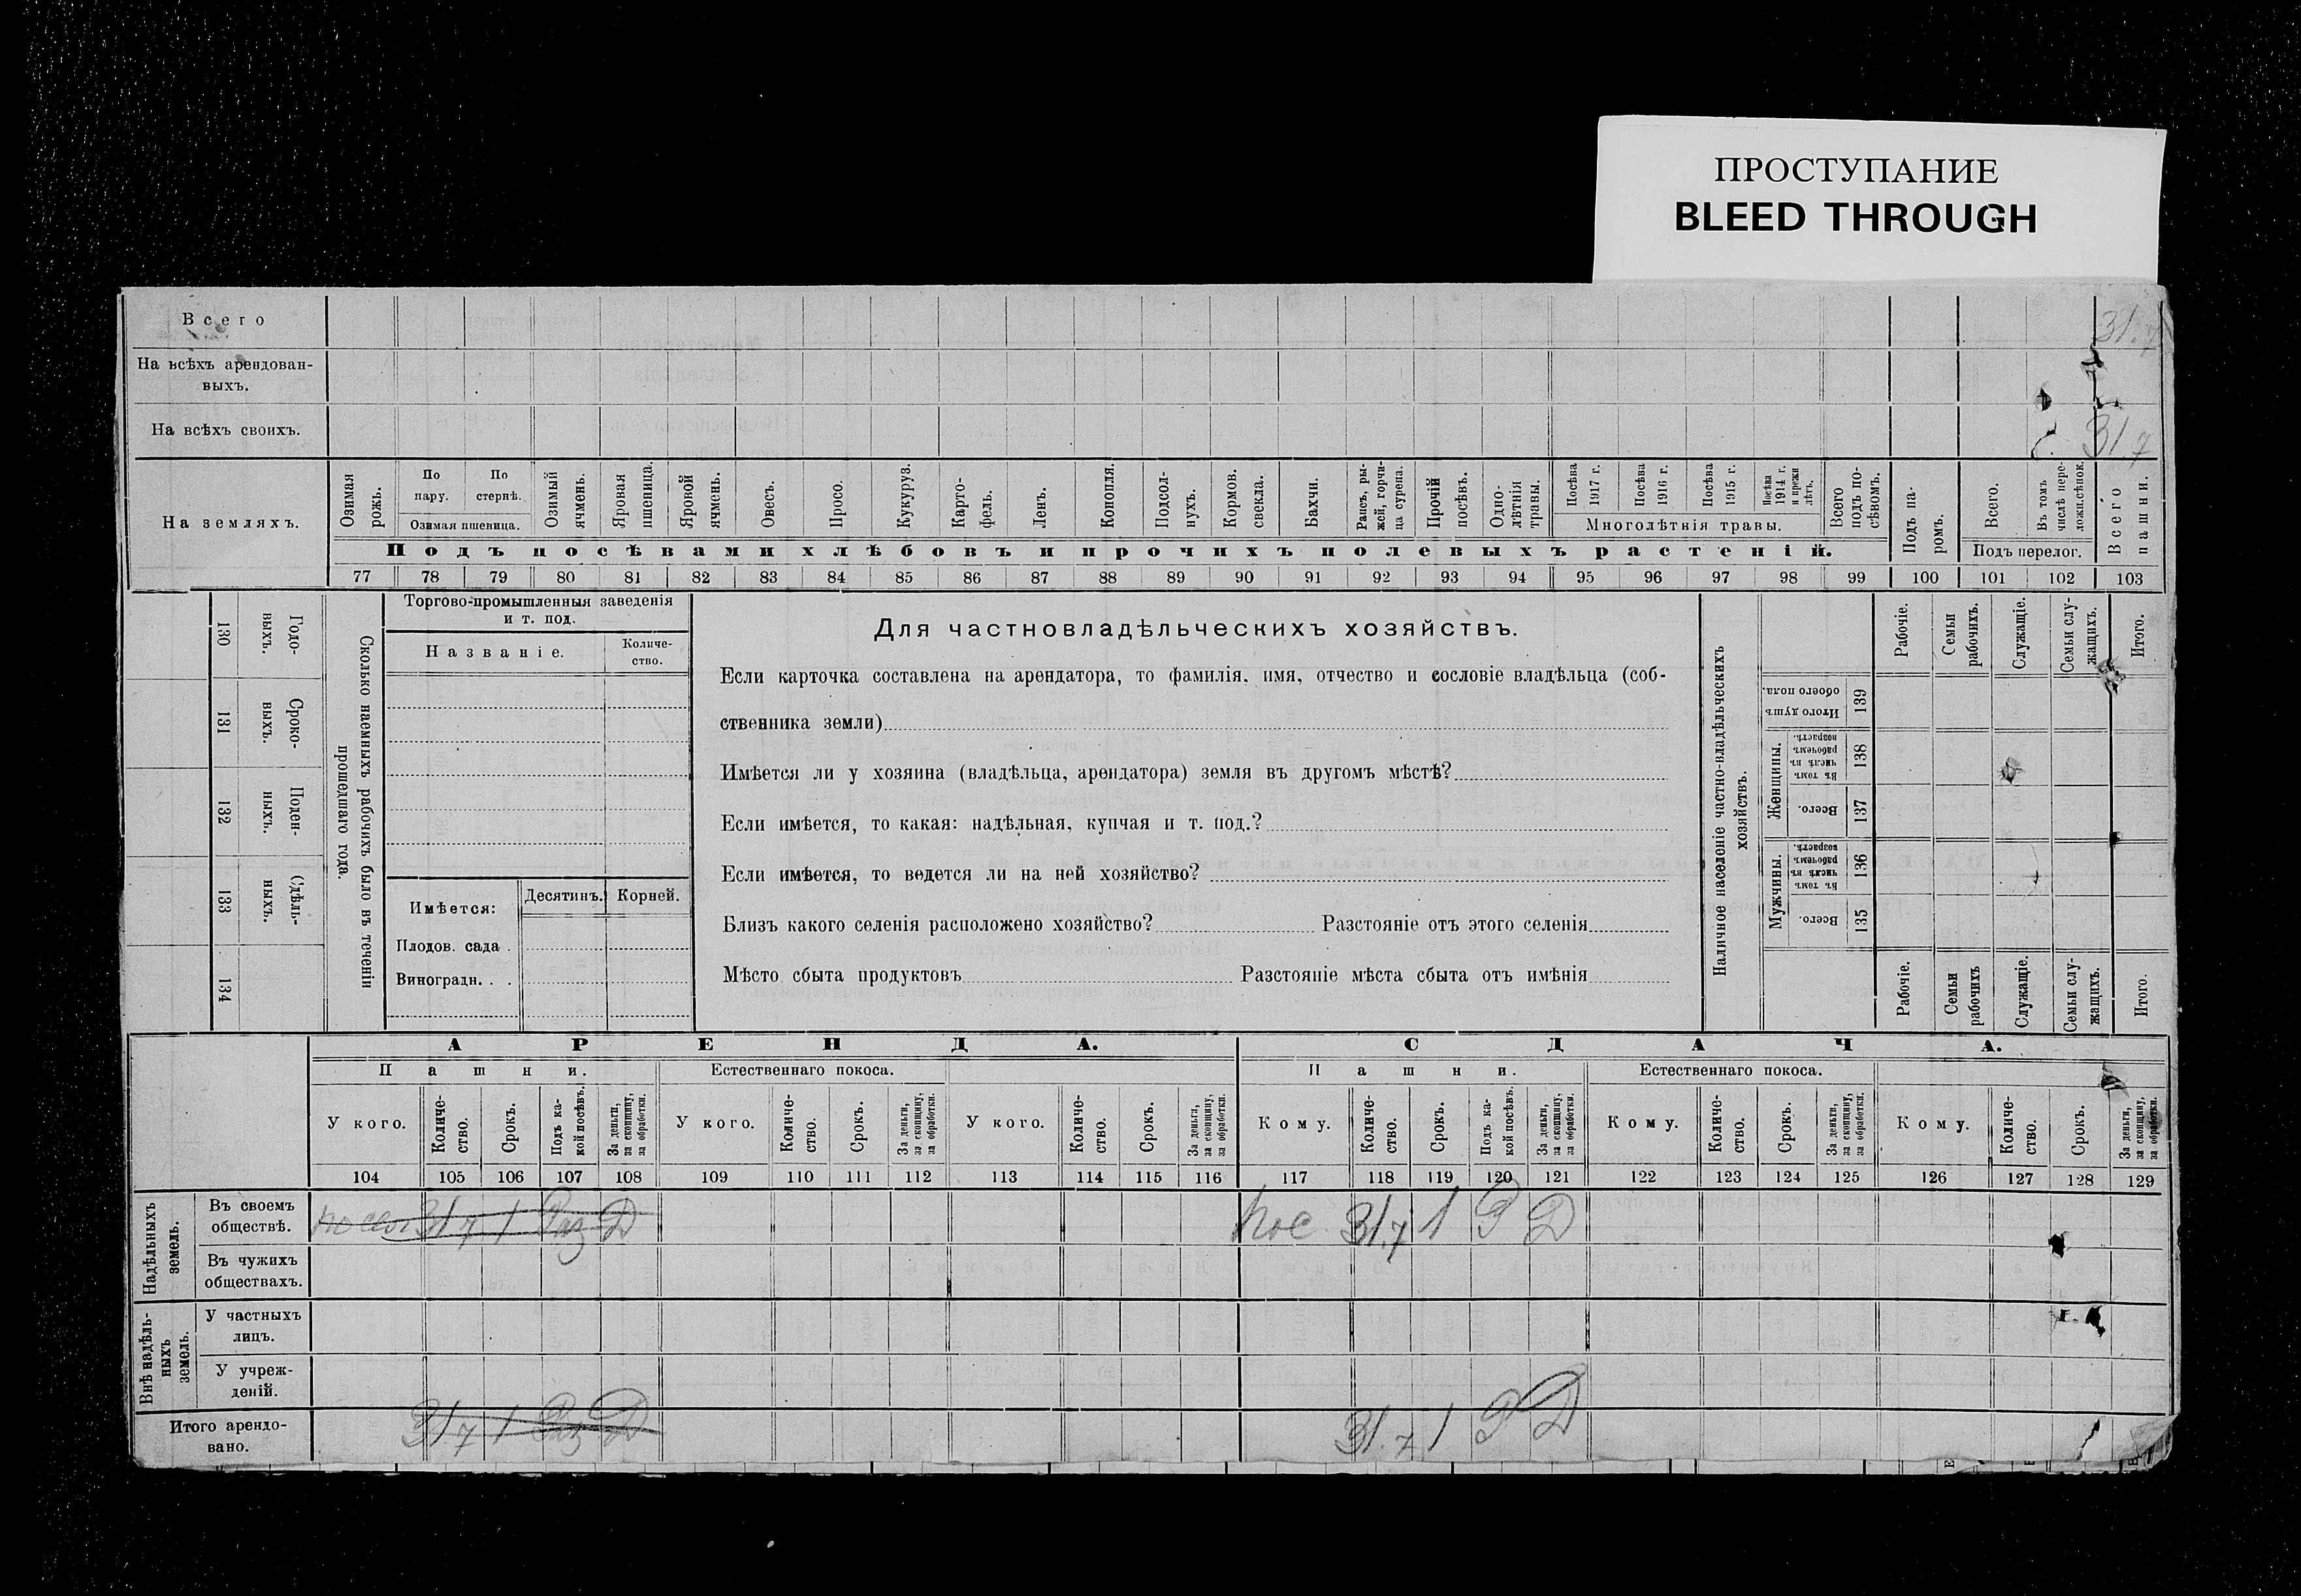 ПРОСТУПАНИЕ
BLEED THROUGH
Всего
31.7
На всѣхъ арендован-
ныхъ.
На всѣхъ своихъ.
31.7
На земляхъ.
Озимая рожь.
По пару.
По стернѣ.
Озимая пшеница.
Озимый ячмень.
Яровая пшеница.
Яровой ячмень.
Овесъ.
Просо.
Кукуруз.
Карто-фель.
Ленъ.
Конопля.
Подсол-нухъ.
Кормов. свекла.
Бахчи.
Рапсъ, ры-жей, горчи-ца сурепа.
Прочій посѣвъ.
Одно-лѣтнія травы.
Посѣва 1917 г.
Посѣва 1916 г.
Посѣва 1915 г.
Посѣва 1914 г. и прежн лѣтъ.
Многолѣтнія травы.
Всего подъ по-сѣвомъ.
Подъ па-ромъ.
Всего.
Въ томъ числѣ пере-ложн.сѣнок.
Подъ перелог.
Всего пашни.
Подъ посѣвами хлѣбовъ и прочихъ полевыхъ растеній.
77 78 79 80 81 82 83 84 85 86 87 88 89 90 91 92 93 94 95 96 97 98 99 100 101 102 103
130 Годо-выхъ.
131 Сроко-выхъ.
132 Поден-ныхъ.
133 Сдѣль-ныхъ.
134
Сколько наемныхъ рабочихъ было въ теченіи
прошедшаго года.
Торгово-промышленныя заведенія
и т. под.
Названіе.
Количе-ство.
Имѣется:
Десятинъ.
Корней.
Плодов. сада .
Виноградн. . .
Для частновладѣльческихъ хозяйствъ.
Если карточка составлена на арендатора, то фамилія, имя, отчество и сословіе владѣльца (соб-
ственника земли)
Имѣется ли у хозяина (владѣльца, арендатора) земля въ другомъ мѣстѣ?
Если имѣется, то какая: надѣльная, купчая и т. под.?
Если имѣется, то ведется ли на ней хозяйство?
Близъ какого селенія расположено хозяйство? Разстояніе отъ этого селенія
Мѣсто сбыта продуктовъ Разстояніе мѣста сбыта отъ имѣнія
Наличное населеніе частно-владѣльческихъ
хозяйствъ.
Рабочіе.
Семьи рабочихъ.
Служащіе.
Семьи слу-жащихъ.
Итого.
Итого душъ обоего пола.
139
Женщины.
Въ томъ числѣ въ рабочемъ возрастѣ.
138
Всего.
137
Мужчины.
Въ томъ числѣ въ рабочемъ возрастѣ.
136
Всего.
135
Рабочіе.
Семьи рабочихъ
Служащіе.
Семьи слу-жащихъ.
Итого.
АРЕНДА.
СДАЧА.
Пашни.
Естественнаго покоса.
Пашни.
Естественнаго покоса.
У кого.
Количе-ство.
Срокъ.
Подъ ка-кой посѣвъ.
За деньги, за скопщину, за обработки.
У кого.
Количе-ство.
Срокъ.
За деньги, за скопщину, за обработки.
У кого.
Количе-ство.
Срокъ.
За деньги, за скопщину, за обработки.
Кому.
Количе-ство.
Срокъ.
Подъ ка-кой посѣвъ.
За деньги, за скопщину, за обработки.
Кому.
Количе-ство.
Срокъ.
За деньги, за скопщину, за обработки.
Кому.
Количе-ство.
Срокъ.
За деньги, за скопщину, за обработки.
104 105 106 107 108 109 110 111 112 113 114 115 116 117 118 119 120 121 122 123 124 125 126 127 128 129
Надѣльныхъ земель.
Въ своемъ
обществѣ.
31 7 1 Раз Д
пос. 31.7 1 Р Д
Въ чужихъ
обществахъ.
Внѣ надѣль-ныхъ земель.
У частныхъ
лицъ.
У учреж-
деній.
Итого арендо-
вано.
31 7 1 Раз Д
31.7 1 Р Д